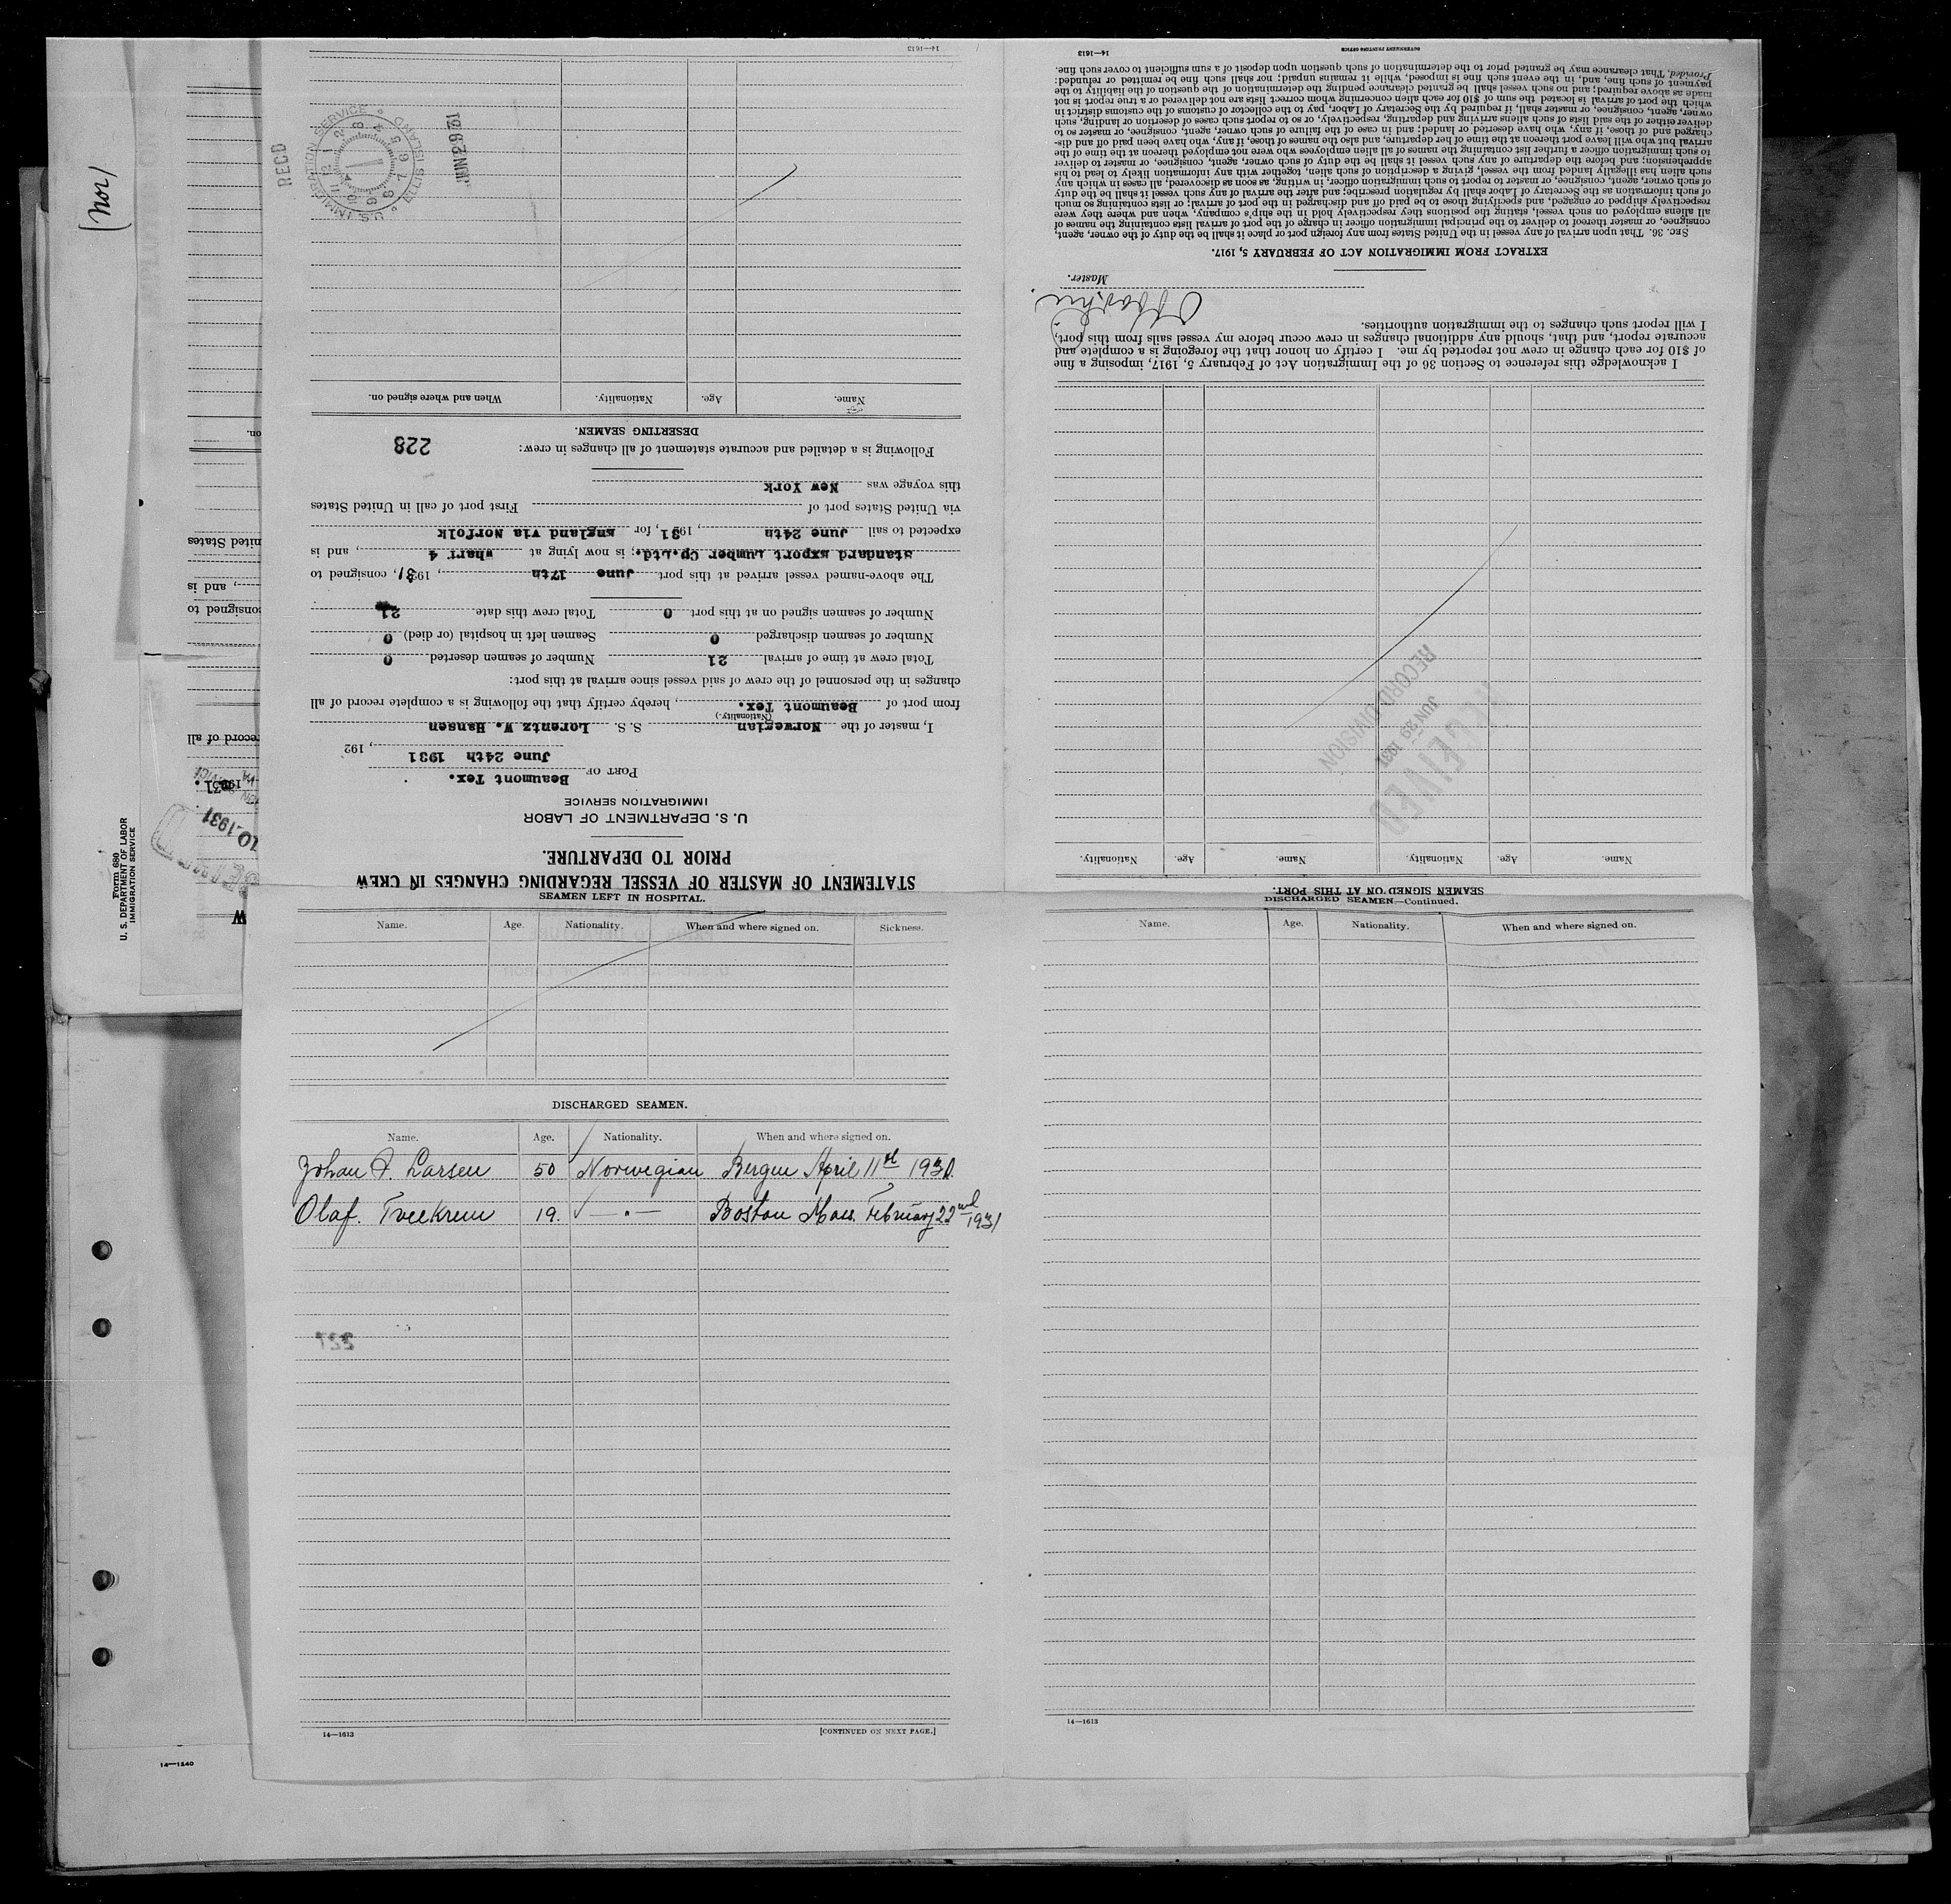 STATEMENT OF MASTER OF VESSEL REGARDING CHANGES IN CREW
PRIOR TO DEPARTURE.
U. S. DEPARTMENT OF LABOR
IMMIGRATION SERVICE
PORT OF Beaumont Tex.
June 24th 1931, 192
I, master of the Norwegian S. S. Lorentz W. Hansen
(Nationality.)
from port of Beaumont Tex., hereby certify that the following is a complete record of all
changes in the personnel of the crew of said vessel since arrival at this port:
Total crew at time of arrival 21 Number of seamen deserted 0
Number of seamen discharged 0 Seamen left in hospital (or died) 0
Number of seamen signed on at this port 0 Total crew this date 21
The above-named vessel arrived at this port June 17th, 1931, consigned to
Standard Export Lumber Cp.Ltd.; is now lying at Wharf 4, and is
expected to sail June 24th, 1931, for England via Norfolk
via United States port of First port of call in United States
this voyage was New York
Following is a detailed and accurate statement of all changes in crew:
228
DESERTING SEAMEN.
Name. Age. Nationality. When and where signed on.
RECD
U.S. IMMIGRATION SERVICE
ELLIS ISLAND
JUN 29 31
14—1613
SEAMEN SIGNED ON AT THIS PORT.
Name. Age. Nationality. Name. Age. Nationality.
RECEIVED
JUN 29 1931
RECORD DIVISION
I acknowledge this reference to Section 36 of the Immigration Act of February 5, 1917, imposing a fine
of $10 for each change in crew not reported by me. I certify on honor that the foregoing is a complete and
accurate report, and that, should any additional changes in crew occur before my vessel sails from this port,
I will report such changes to the immigration authorities.
Master.
EXTRACT FROM IMMIGRATION ACT OF FEBRUARY 5, 1917.
SEC. 36. That upon arrival of any vessel in the United States from any foreign port or place it shall be the duty of the owner, agent,
consignee, or master thereof to deliver to the principal immigration officer in charge of the port of arrival lists containing the names of
all aliens employed on such vessel, stating the positions they respectively hold in the ship's company, when and where they were
respectively shipped or engaged, and specifying those to be paid off and discharged in the port of arrival; or lists containing so much
of such information as the Secretary of Labor shall by regulation prescribe; and after the arrival of any such vessel it shall be the duty
of such owner, agent, consignee, or master to report to such immigration officer, in writing, as soon as discovered, all cases in which any
such alien has illegally landed from the vessel, giving a description of such alien, together with any information likely to lead to his
apprehension; and before the departure of any such vessel it shall be the duty of such owner, agent, consignee, or master to deliver
to such immigration officer a further list containing the names of all alien employees who were not employed thereon at the time of the
arrival but who will leave port thereon at the time of her departure, and also the names of those, if any, who have been paid off and dis-
charged and of those, if any, who have deserted or landed; and in case of the failure of such owner, agent, consignee, or master so to
deliver either of the said lists of such aliens arriving and departing, respectively, or so to report such cases of desertion or landing, such
owner, agent, consignee, or master shall, if required by the Secretary of Labor, pay to the collector of customs of the customs district in
which the port of arrival is located the sum of $10 for each alien concerning whom correct lists are not delivered or a true report is not
made as above required; and no such vessel shall be granted clearance pending the determination of the question of the liability to the
payment of such fine, and, in the event such fine is imposed, while it remains unpaid; nor shall such fine be remitted or refunded:
Provided, That clearance may be granted prior to the determination of such question upon deposit of a sum sufficient to cover such fine.
14—1613 GOVERNMENT PRINTING OFFICE
SEAMEN LEFT IN HOSPITAL.
Name. Age. Nationality. When and where signed on. Sickness.
DISCHARGED SEAMEN.
Name. Age. Nationality. When and where signed on.
Johan A. Larsen 50 Norwegian Bergen April 11th 1930.
Olaf. Tveekrem 19. —"— Boston Mass. February 22nd 1931
227
14—1613 [CONTINUED ON NEXT PAGE.]
DISCHARGED SEAMEN—Continued.
Name. Age. Nationality. When and where signed on.
14—1613
(nor)
Form 680
U. S. DEPARTMENT OF LABOR
IMMIGRATION SERVICE
on.
nited States
, and is
onsigned to
record of all
1931.
10 1931
W
14—1240